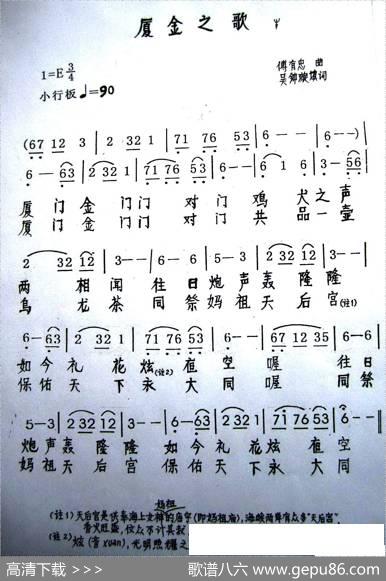 厦金之歌
1=E 3/4
傅有忠 曲
小行板 ♩=90
(67 12 3 | 2 32 12 | 1 -- | 71 76 53 | 6 -- | 6 --) |
6 - 63 | 2 32 12 | 1 -- | 71 76 53 | 6 -- | 3 - 56 |
厦门金门门对门鸡犬之声
厦门金门门对门共品一壶
2 32 12 | 3 -- | 6 - 63 | 2 32 12 | 1 -- | 71 76 53 |
两相闻往日炮声轰隆隆
乌龙茶同祭妈祖天后宫(注1)
6 - 63 | 2 32 12 | 1 -- | 71 76 53 | 6 -- | 6 -- | 6 - 6 |
如今礼花炫(注2)值空喔往日
保佑天下永大同喔同祭
5 - 3 | 2 32 12 | 3 -- | 6 - 63 | 2 32 12 | 1 -- | 71 76 53 | 6 -- ‖
炮声轰隆隆如今礼花炫值空
妈祖天后宫保佑天下永大同
妈祖
(注1)天后宫是供奉海上女神的庙宇(即妈祖庙),海峡两岸有众多"天后宫"
香火旺盛,
(注2)炫(音xuan),光明照耀之
高清下载 >>>
歌谱八六 — www.gepu86.com